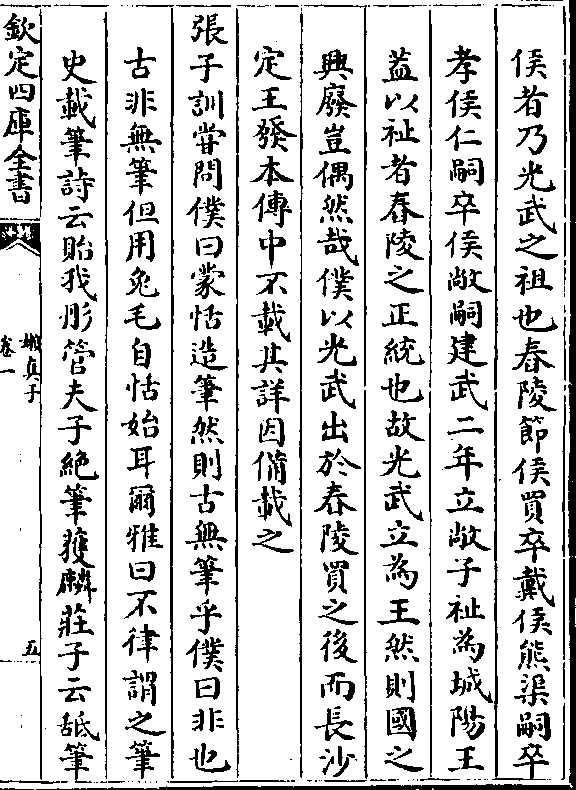 侯者乃光武之祖也舂陵節侯買卒戴侯熊渠嗣卒
孝侯仁嗣卒侯敞嗣建武二年立敞子祉為城陽王
蓋以祉者舂陵之正統也故光武立為王然則國之
興廢豈偶然哉僕以光武出於舂陵買之後而長沙
定王發本傳中不載其詳因備載之
張子訓嘗問僕曰蒙恬造筆然則古無筆乎僕曰非也
古非無筆但用兔毛自恬始耳爾雅曰不律謂之筆
史載筆詩云貽我彤管夫子絕筆獲麟莊子云舐筆
欽定四庫全書
嬾真子
卷一
五